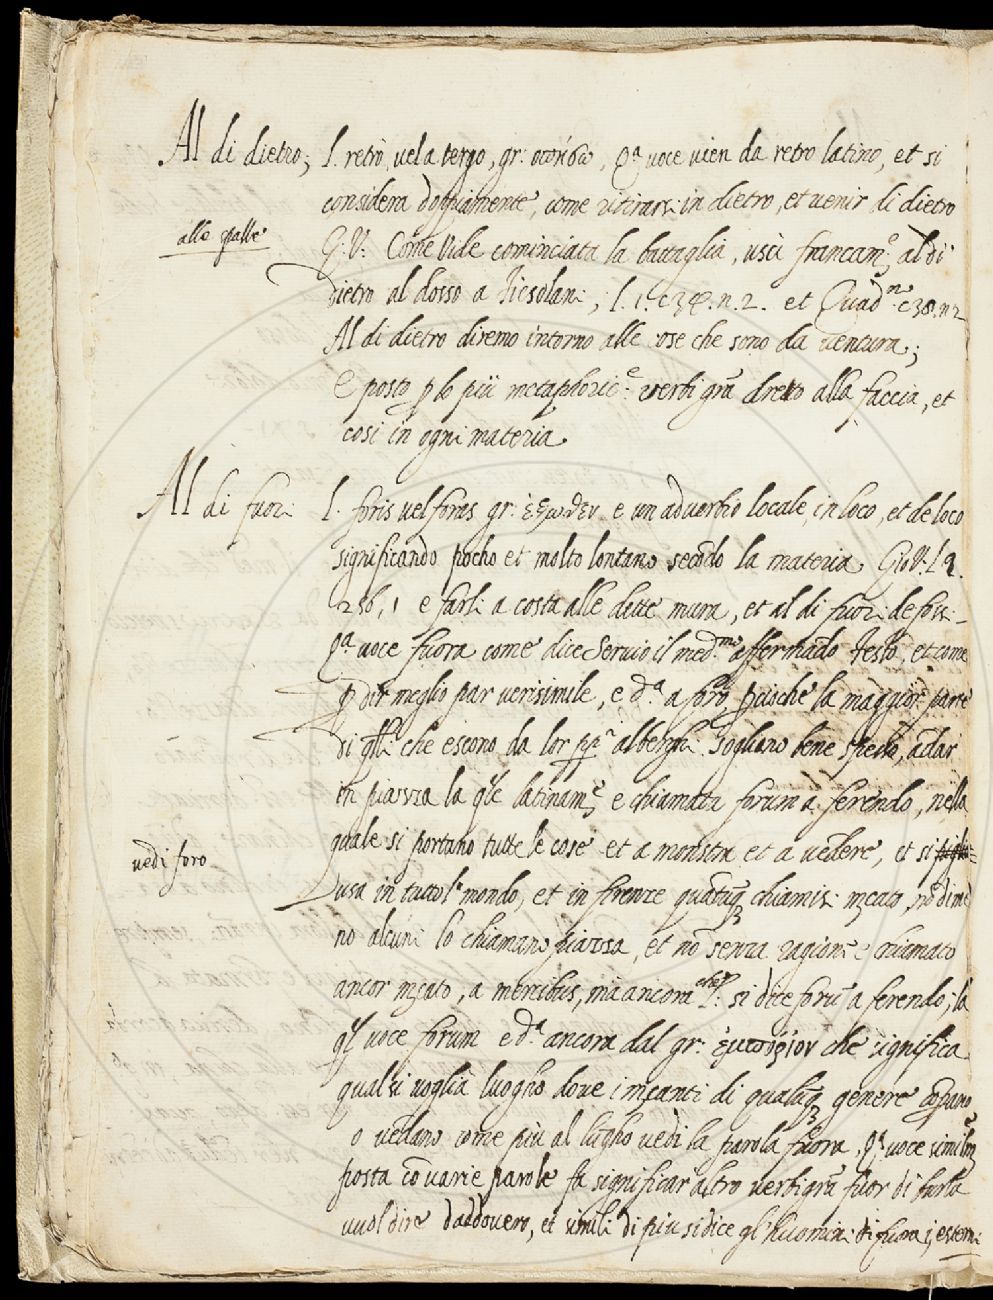 Al di dietro; l. retrò, vel a tergo, gr: ὀπίσω, Qª voce vien da retro latino, et si
considera doppiamente, come ritirarsi in dietro, et venir di dietro
alle spalle
G: V: Come vide cominciata la battaglia, uscì francamᵉ, al di
dietro al dosso a Fiesolani; l. 1. c. n. 2. et c 38. n 2
Al di dietro diremo intorno alle cose che sono da ventura;
E posto p lo più metaphoricᵉ verbi gra dreto alla faccia, et
così in ogni materia
Al di fuori l. foris vel foras gr: ἔξωθεν e un adverbio locale, in loco, et de loco
significando pocho et molto lontano secōdo la materia Gio V: l 9.
256, 1 e farli a costa alle dette mura, et al di fuori de fossi
Qª voce fuora come dice Servio il medᵐᵒ affermādo Festo, et come
p dir meglio par verisimile, e dª a foro, pcioche la maggior parte
di qlli che escono da lor ppi alberghi sogliono bene spesso, ādar
in piazza la qle latinamᵉ e chiamata forum a ferendo, nella
quale si portano tutte le cose et a monstra et a vedere, et si
vedi foro
usa in tutto l mondo, et in firenze quātūq chiamisi mcato, nōdime
no alcuni lo chiamano piazza, et nō senza ragione è chiamato
ancor mcato, a mercibus, ma ancora si dice forū a ferendo; la
ql voce forum e dª ancora dal gr: ἐμπορίον che significa
qualsi voglia luogho dove i mcanti di qualūq genere cōprano
o vēdano come piu al lugho vedi la parola fuora, Qª voce similmᵉ
posta cō varie parole fa significar altro verbi gra fuor di burla
vuol dire daddovero, et simili di piu si dice gl'huomini di fuora i; esterni